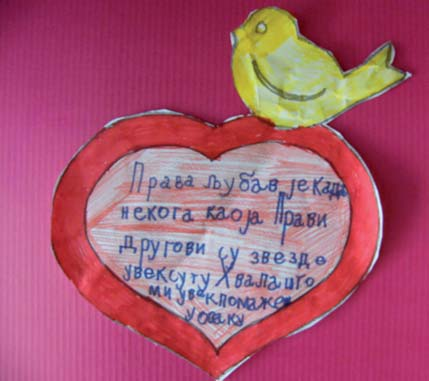 Права љубав је када
некога каоја Прави
другови су звезде
увексуту Хвалашто
ми увекпомаже
у